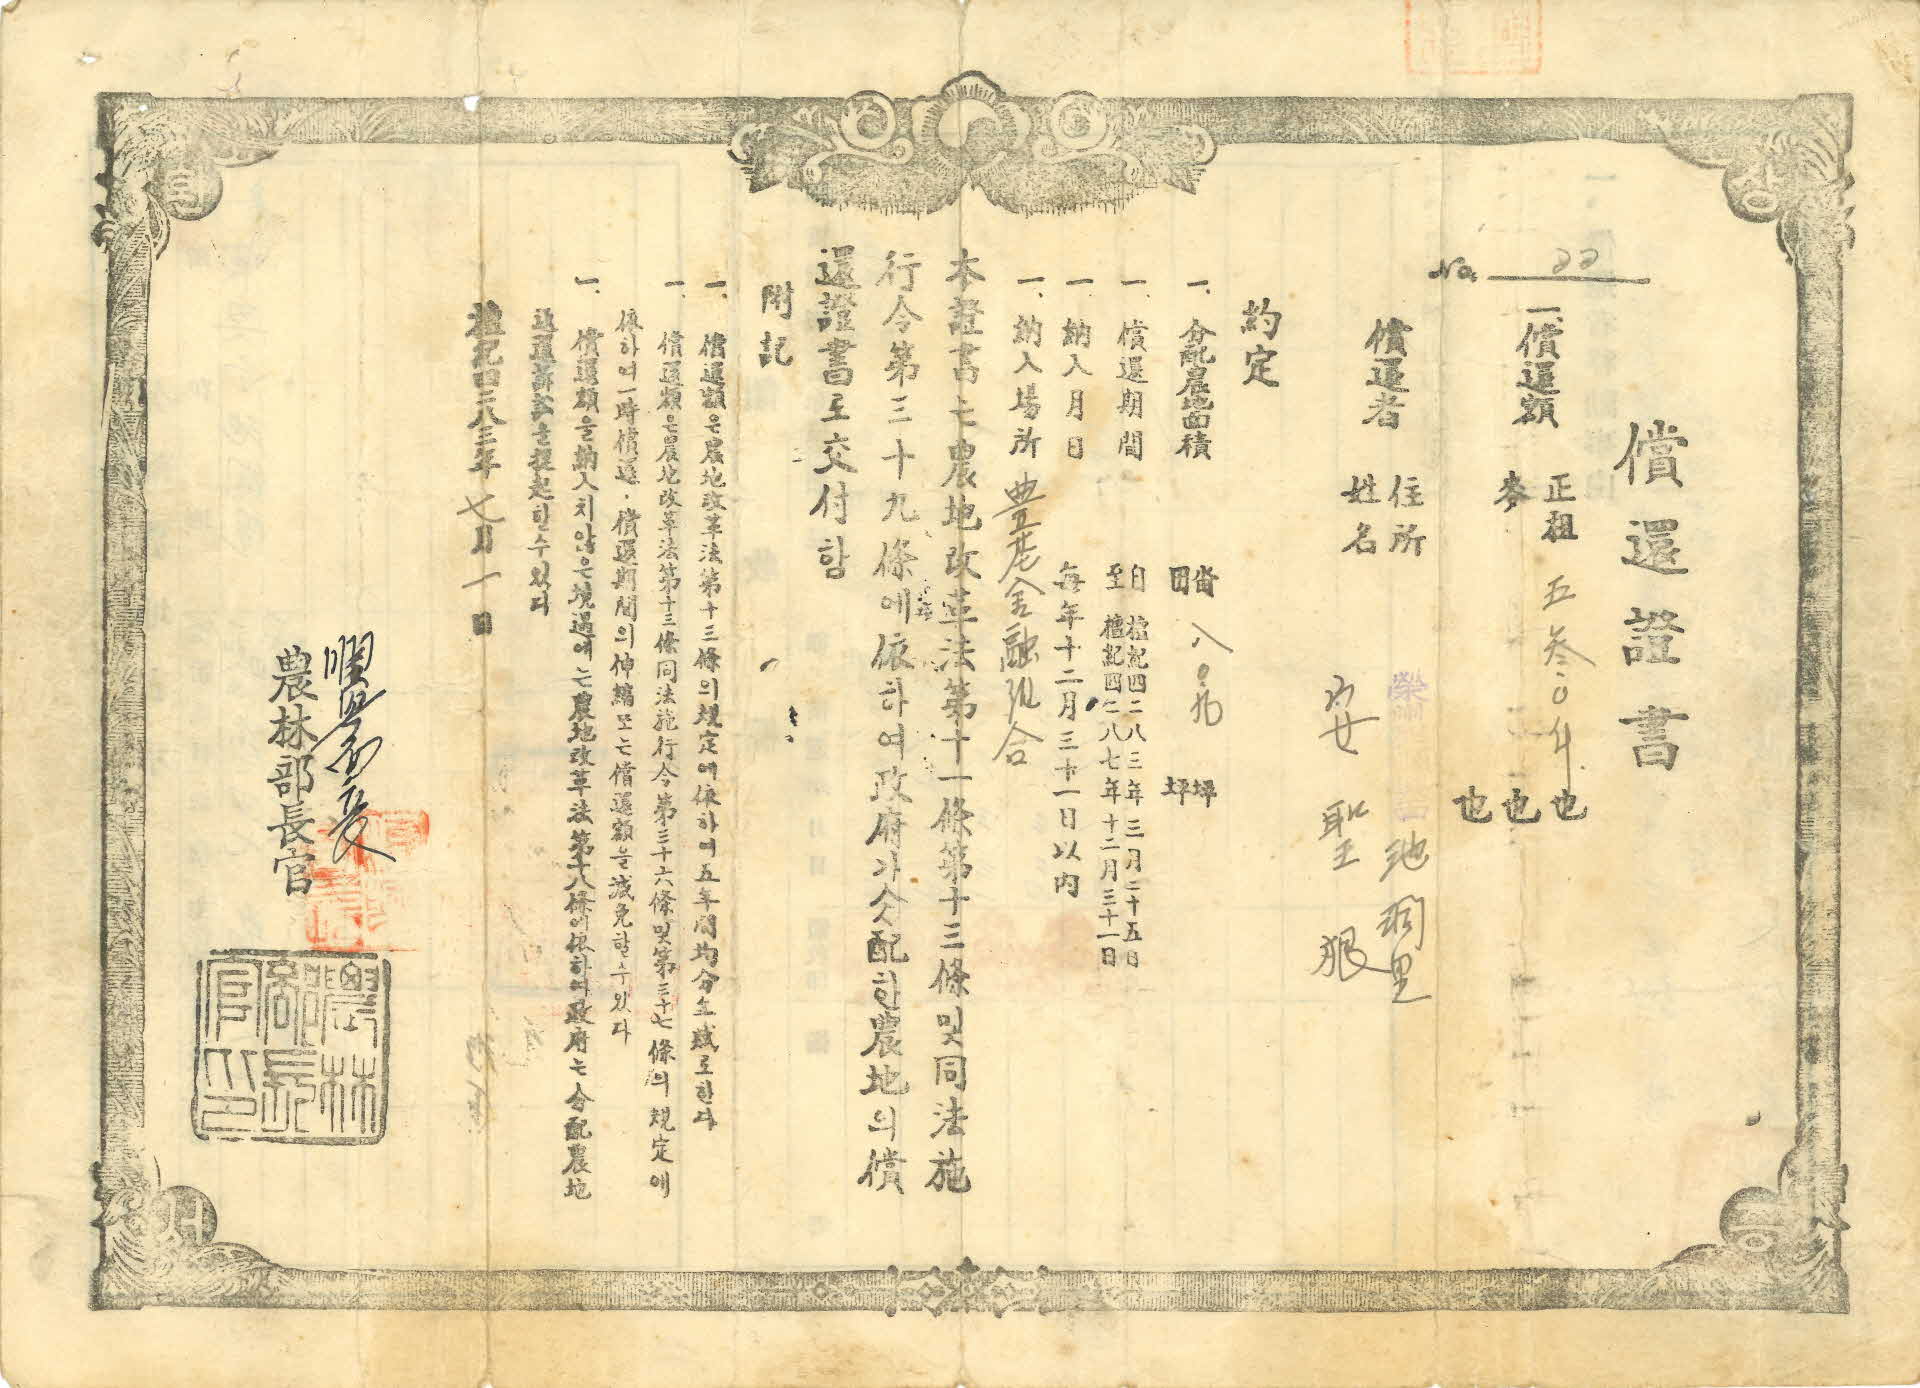 償還證書
No. 22
一、償還額 正租 五叁〇升 也
麥 也
也
償還者 住所 池洞里
姓名 安聖根
約定
一、分配農地面積 畓 八〇九 坪
田 坪
一、償還期間 自檀紀四二八三年三月二十五日
至檀紀四二八七年十二月三十一日
一、納入月日 每年十二月三十一日以內
一、納入場所 豊基金融組合
本證書는農地改革法第十一條第十三條및同法施
行令第三十九條에依하여政府가分配한農地의償
還證書로交付함
附記
一、償還額은農地改革法第十三條의規定에依하여五年間均分年賦로한다
一、償還額은農地改革法第十三條同法施行令第三十六條및第三十七條의規定에
依하여一時償還·償還期間의伸縮또는償還額을減免할수있다
一、償還額을納入치않은境遇에는農地改革法第十八條에依하여政府는分配農地
返還訴訟을提起할수있다
檀紀四二八三年七月一日
農林部長官
農林部長官之印